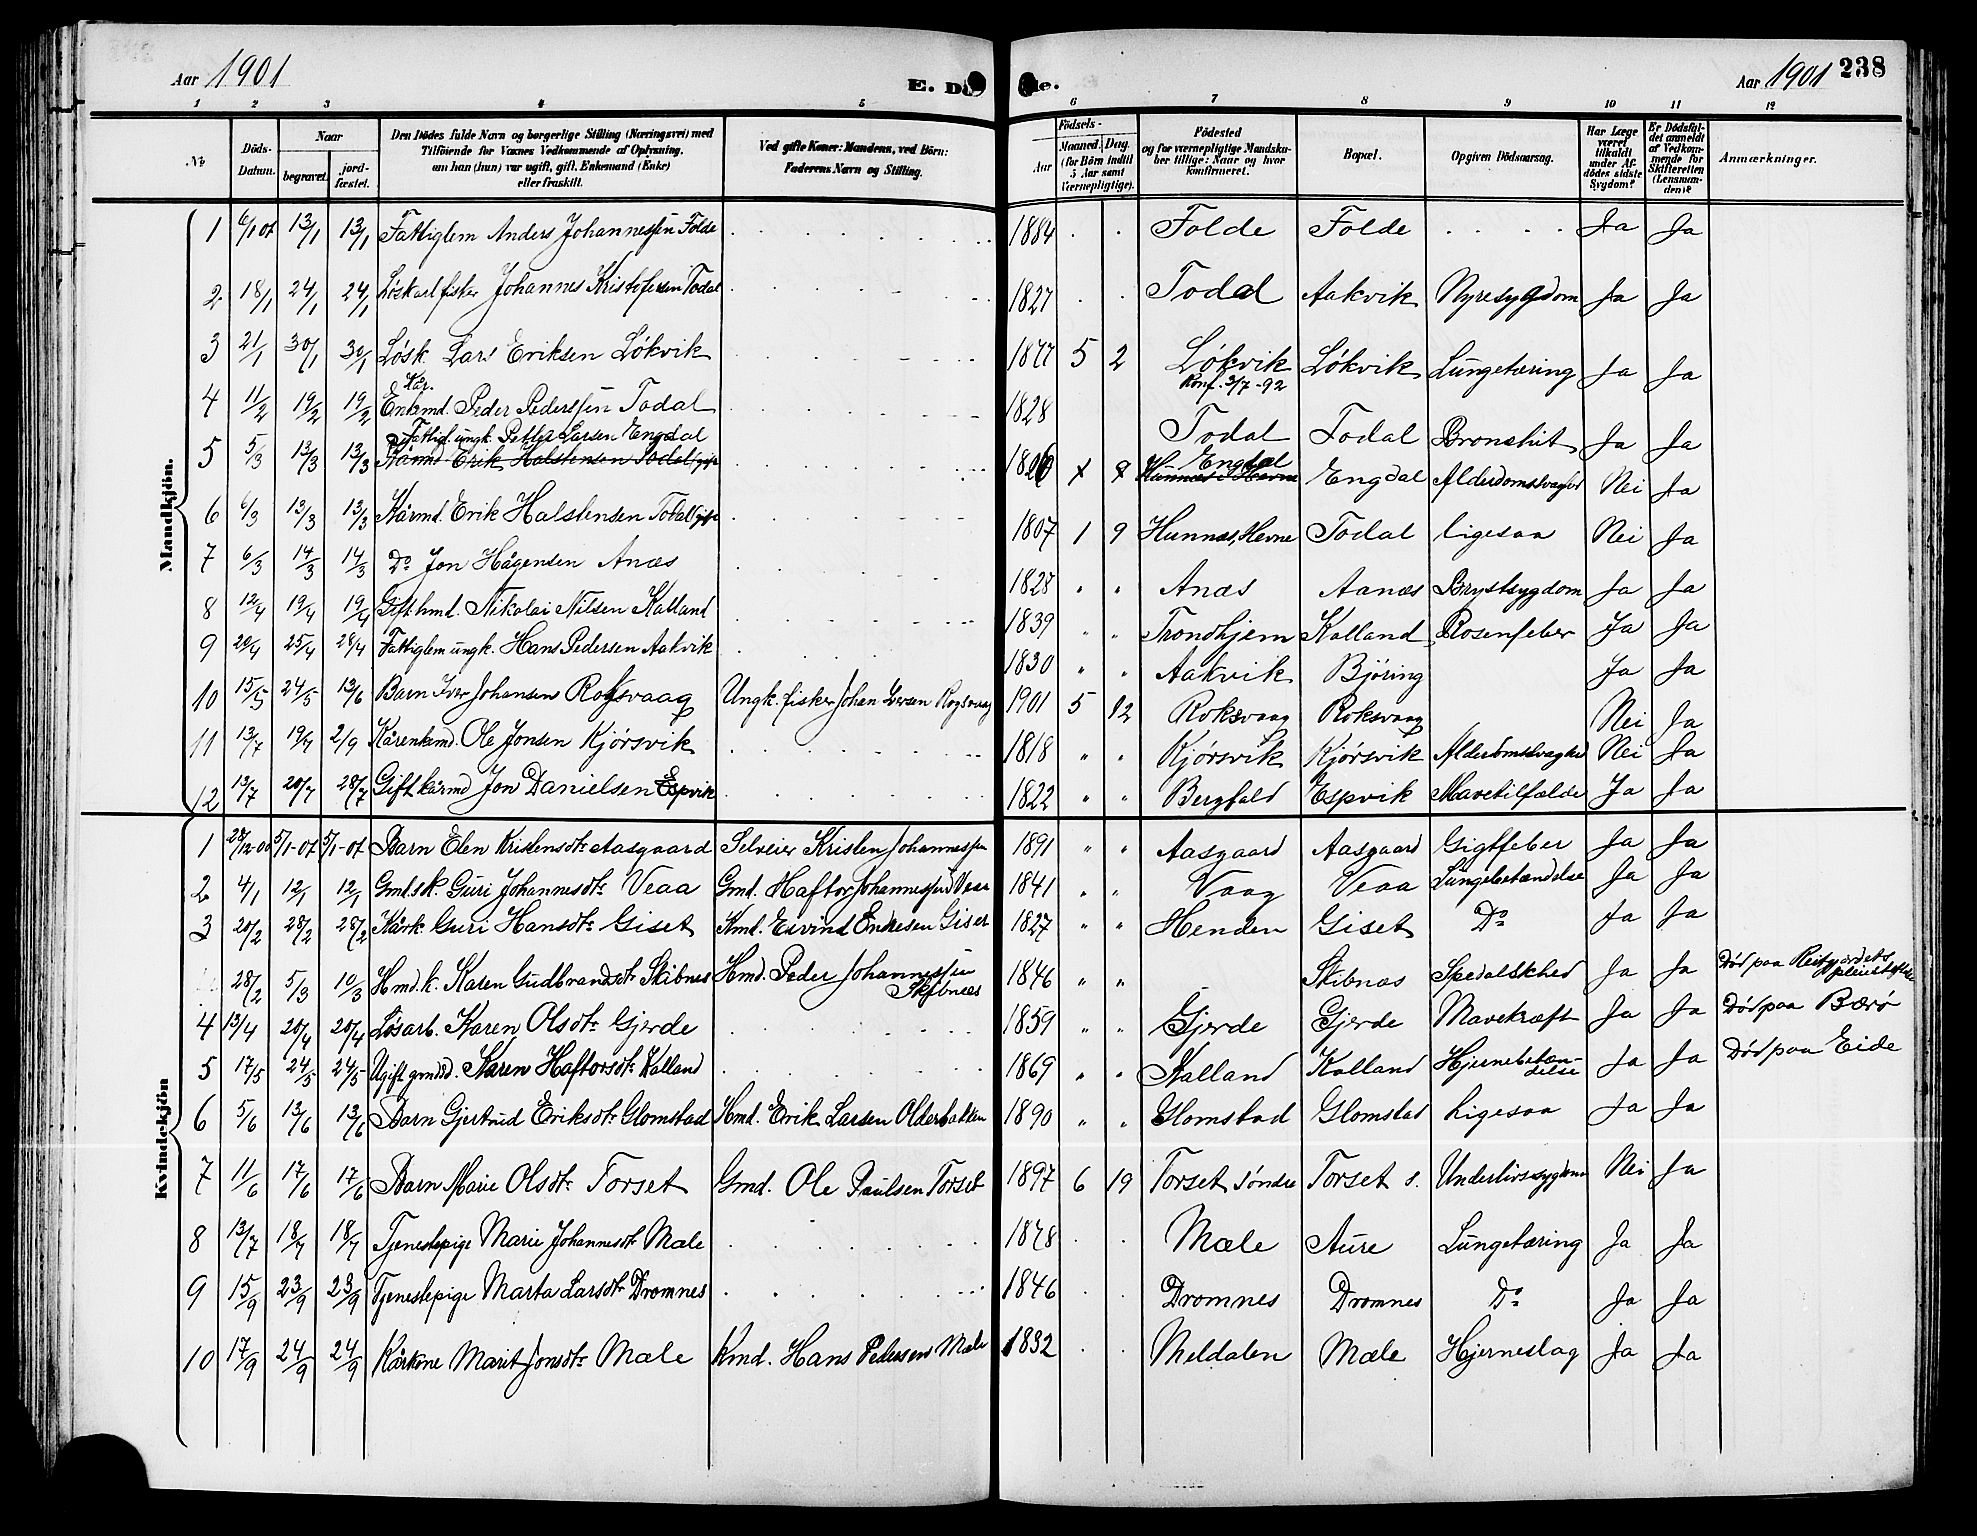 Aar 1901
E. Dö
de.
Aar 1901 238
1 2 3 4 5 6 7 8 9 10 11 12
№
Döds-Datum.
Naar
begravet.
jord-fæstet.
Den Dødes fulde Navn og borgerlige Stilling (Næringsvei) med
Tilføiende for Voxnes Vedkommende af Oplysning,
om han (hun) var ugift, gift, Enkemand (Enke)
eller fraskilt.
Ved gifte Koner: Mandens, ved Börn:
Faderens Navn og Stilling.
Födsels-
Aar
Maaned. Dag.
(for Börn indtil
5 Aar samt
Værnepligtige).
Födested
og for værnepligtige Mandska-
ber tillige: Naar og hvor
konfirmeret.
Bopæl.
Opgiven Dödsaarsag.
Har Læge
været
tilkaldt
under Af-
dödes sidste
Sygdom?
Er Dödsfal-
det anmeldt
af Vedkom-
mende for
Skifteretten
(Lensman-
den)?
Anmærkninger.
Mandkjön.
1 6/1 01 13/1 13/1 Fattiglem Anders Johannessen Folde 1884 Folde Folde Ja Ja
2 18/1 24/1 24/1 Løskarl fisker Johannes Kristofersen Todal 1827 Todal Aakvik Nyresygdom Ja Ja
3 21/1 30/1 30/1 Løsk. Lars Eriksen Løkvik 1877 5 2 Løkvik Løkvik Lungetæring Ja Ja
Konf. 3/7-92
Kår.
4 11/2 19/2 19/2 Enkemd. Peder Pederssen Todal 1828 Todal Todal Bronchit Ja Ja
Fattigl. ungk. Petter Larsen Engdal
5 5/3 13/3 13/3 Kårmd Erik Halstensen Todal gift 1826 Engdal Hunnæs i Hevne Engdal Alderdomssvaghed Nei Ja
6 6/3 13/3 13/3 Kårmd. Erik Halstensen Todal gift 1807 1 9 Hunnæs, Hevne Todal ligesaa Nei Ja
7 6/3 14/3 14/3 Do Jon Hågensen Anæs 1828 " " Anæs Aanæs Brystsygdom Ja Ja
8 12/4 19/4 19/4 Gift hmd. Nikolai Nilsen Kalland 1839 " " Trondhjem Kalland Rosenfeber Ja Ja
9 20/4 25/4 28/4 Fattiglem ungk. Hans Pedersen Aakvik 1830 " " Aakvik Bjøring Ja Ja
10 15/5 24/5 13/6 Barn Iver Johansen Roksvaag Ungk. fisker Johan Iversen Rogsvaag 1901 5 12 Roksvaag Roksvaag Nei Ja
11 13/7 19/7 2/9 Kårenkemd. Ole Jonsen Kjørsvik 1818 " " Kjørsvik Kjørsvik Alderdomssvaghed Nei Ja
12 13/7 20/7 28/7 Gift kårmd Jon Danielsen Espvik 1822 " " Bergfald Espvik Mavetilfælde Ja Ja
Kvindekjön
1 28/12-00 5/1-01 5/1-01 Barn Elen Kristensdtr Aasgaard Selveier Kristen Johannessen 1891 " " Aasgaard Aasgaard Gigtfeber Ja Ja
2 4/1 12/1 12/1 Gmds.k. Guri Johannesdtr Veaa Gmd. Haftor Johannessen Veaa 1841 " " Vaag Veaa Lungebetændelse Ja Ja
3 20/2 28/2 28/2 Kårk. Guri Hansdtr Giset Kmd. Eivind Endresen Giset 1827 " " Henden Giset Do Ja Ja
28/2 5/3 10/3 Hmd.k. Karen Gudbrandsdtr Skibnes Hmd. Peder Johannessen Skibnæs 1846 " " Skibnæs Spedalskhed Ja Ja Død paa Reitgjærdets pleiestiftelse
4 13/4 20/4 20/4 Løsarb. Karen Olsdtr Gjerde 1859 " " Gjerde Gjerde Mavekræft Ja Ja Død paa Bærø
5 17/5 24/5 24/5 Ugift gmdsd. Karen Haftorsdtr Kalland 1869 " " Kalland Kalland Hjernebetæn-
delse Ja Ja Død paa Eide
6 5/6 13/6 13/6 Barn Gjertrud Eriksdtr Glomstad Hmd. Erik Larsen Olderbakken 1890 " " Glomstad Glomstad Ligesaa Ja Ja
7 11/6 17/6 17/6 Barn Marie Olsdtr Torset Gmd. Ole Paulsen Torset 1897 6 19 Torset søndre Torset s. Underlivssygdom Nei Ja
8 13/7 18/7 18/7 Tjenestepige Marie Johannesdtr Mæle 1878 Mæle Aure Lungetæring Ja Ja
9 15/9 23/9 23/9 Tjenestepige Marta Larsdtr Dromnes 1846 Dromnes Dromnes Do Ja Ja
10 17/9 24/9 24/9 Kårkone Marit Jonsdtr Mæle Kmd. Hans Pedersen Mæle 1832 Meldalen Mæle Hjerneslag Ja Ja